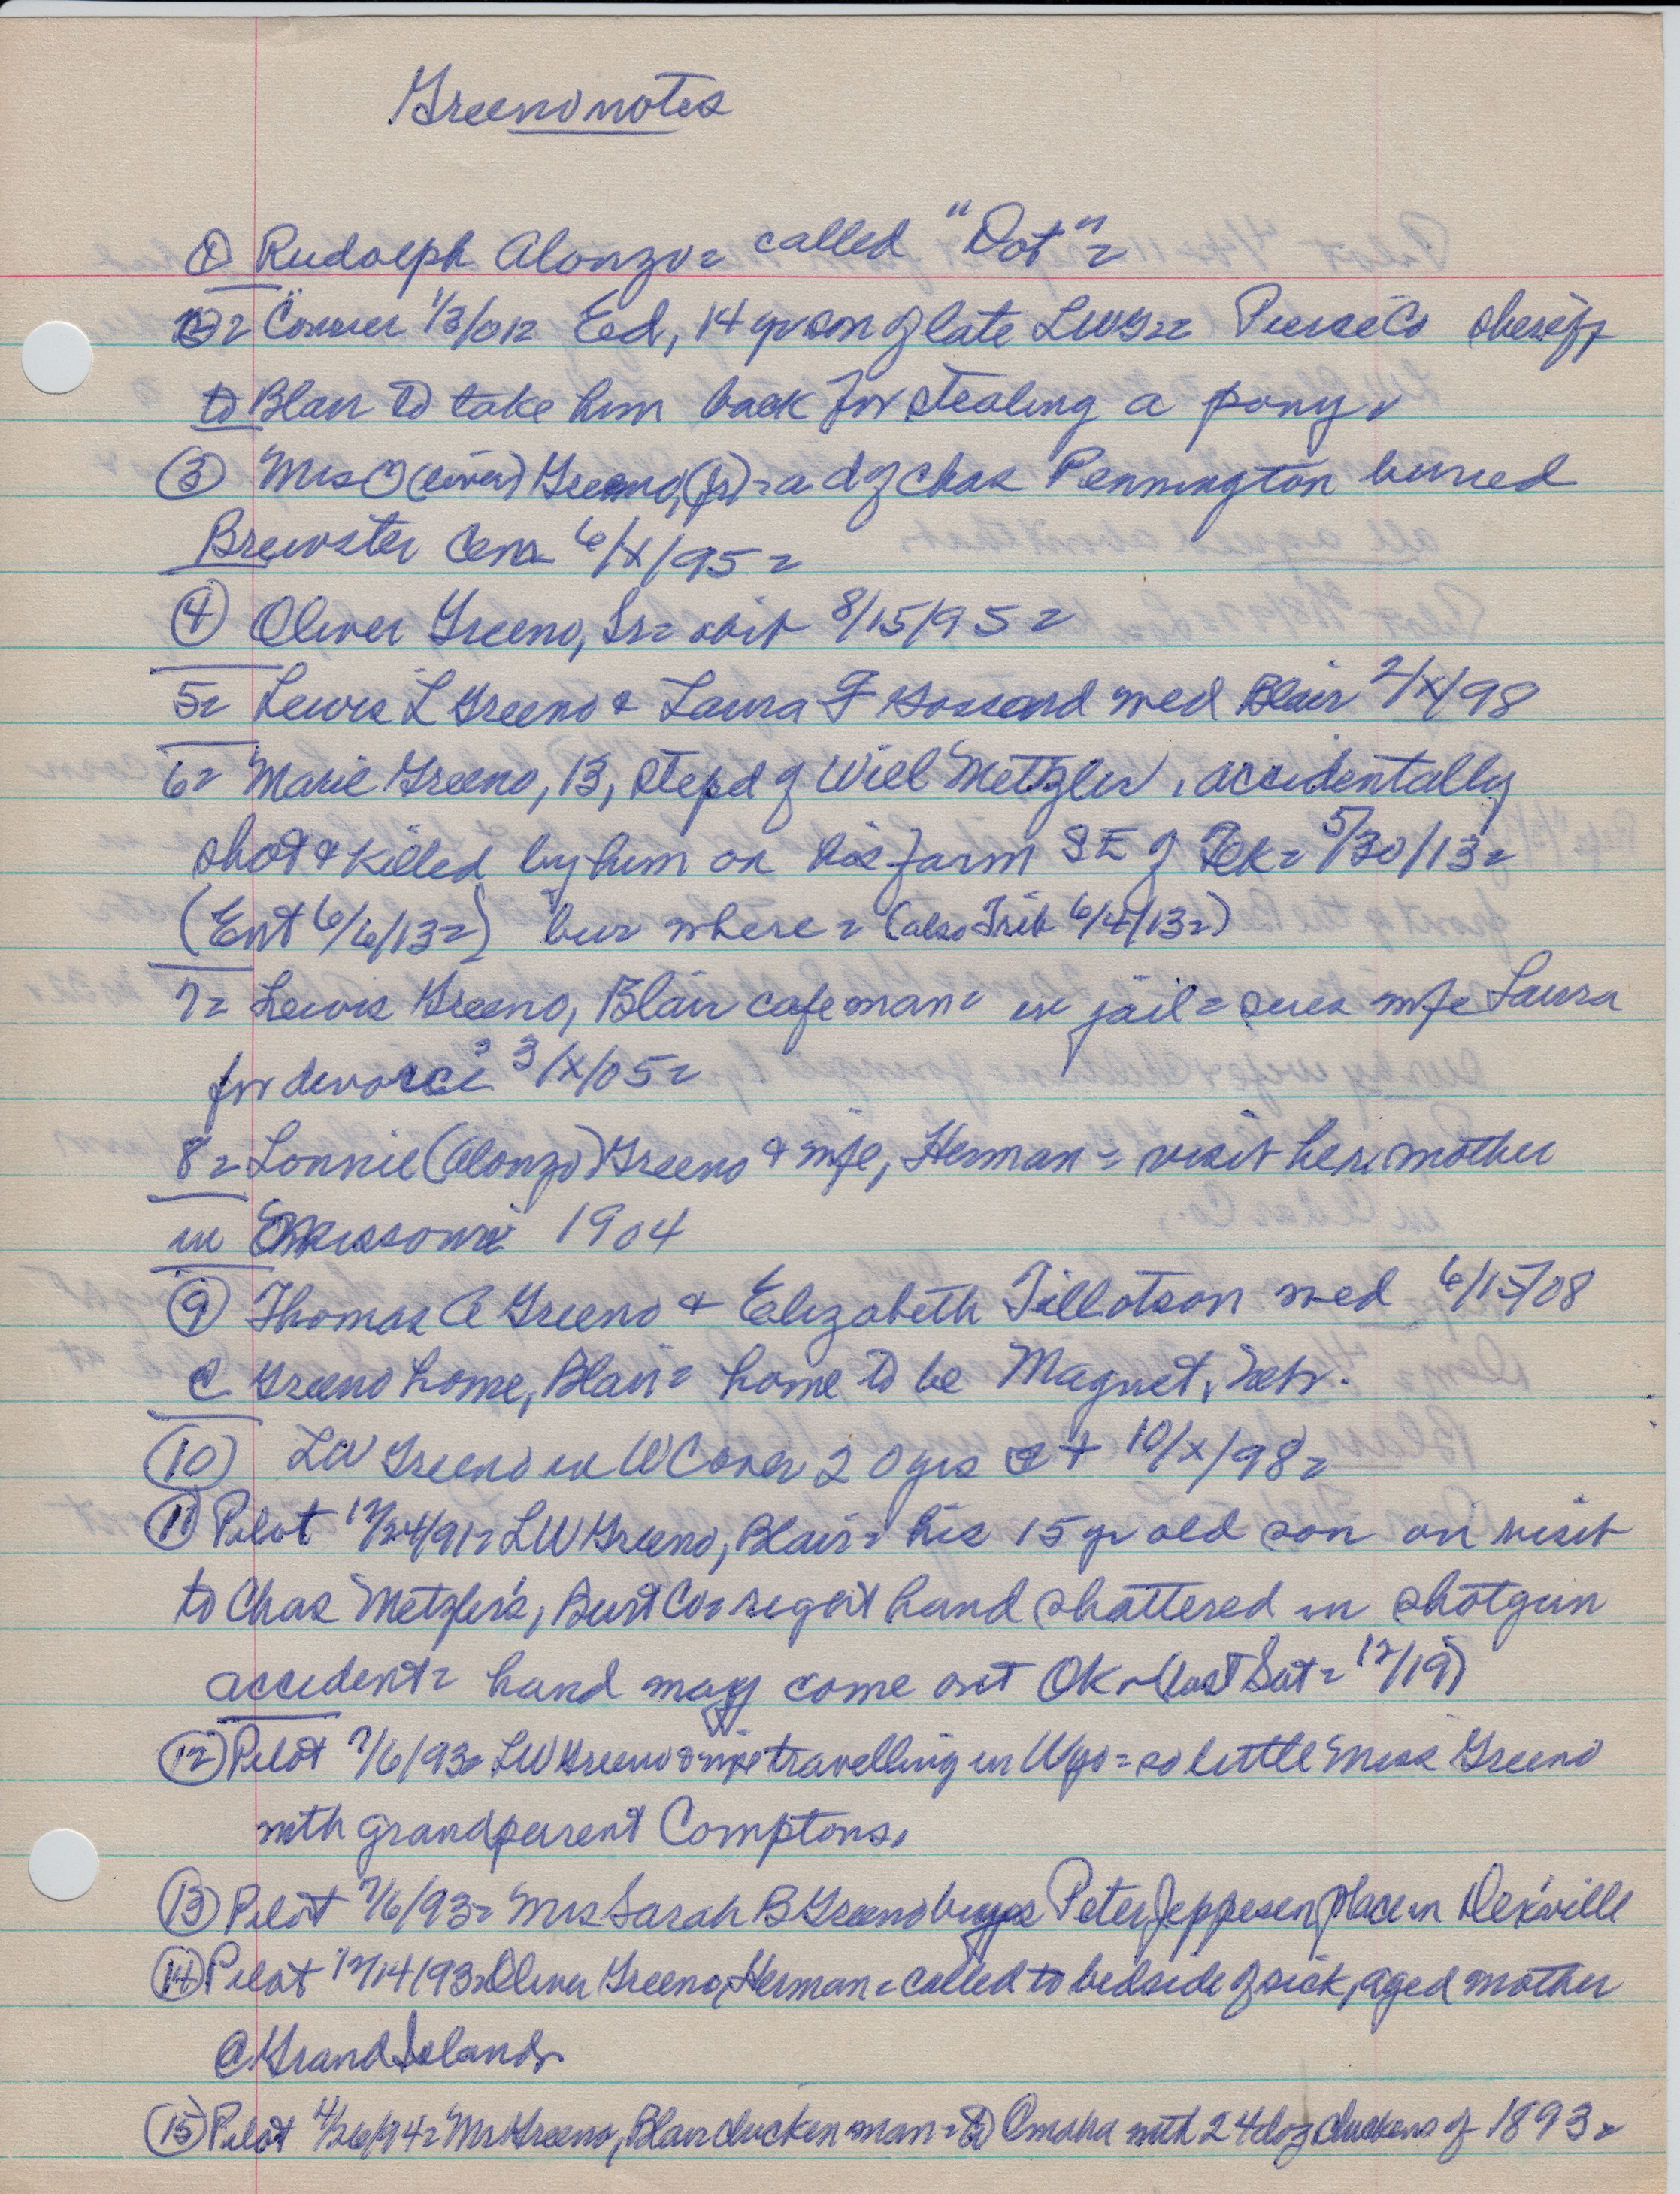 Greeno notes
① Rudolph Alonzo= called "Dot"=
2= Courier 1/3/01= Ed, 14 yr son of late LWG== Pierce Co sheriff
to Blair to take him back for stealing a pony.
③ Mrs O(liver) Greeno, (Jr)=a d of Chas Pennington buried
Brewster Cem 6/X/95=
④ Oliver Greeno, Sr= obit 8/15/95=
5= Lewis L Greeno & Laura F med Blair 2/X/98
6= Marie Greeno, 13, stepd of Will Metzler, accidentally
shot & killed by him on his farm SE of Tek= 5/30/13=
(Ent 6/6/13=) bur where= (also Trib 6/4/13=)
7= Lewis Greeno, Blair cafe man= in jail= sues wife Laura
for divorce 3/X/05=
8= Lonnie (Alonzo) Greeno & wife, Herman= visit her mother
in Missouri 1904
⑨ Thomas A Greeno & Elizabeth Tillotson med 6/15/08
@ Greeno home, Blair= home to be Magnet, Nebr.
⑩ LW Greeno in W Co over 20 yrs 10/X/98=
⑪ Pilot 12/24/91= LW Greeno, Blair= his 15 yr old son on visit
to Chas Metzler's, Burt Co= right hand shattered in shotgun
accident= hand may come out OK (last Sat= 12/19)
⑫ Pilot 7/6/93= LW Greeno & wife travelling in Wyo= so little Miss Greeno
with grandparent Comptons.
⑬ Pilot 7/6/93= Mrs Sarah B Greeno buys Peter Jeppesen place in Dexville
⑭ Pilot 12/14/93= Oliver Greeno, Herman= called to bedside of sick, aged mother
@ Grand Island.
⑮ Pilot 4/26/94= Mr Greeno, Blair chicken man= to Omaha with 24 doz chickens of 1893=